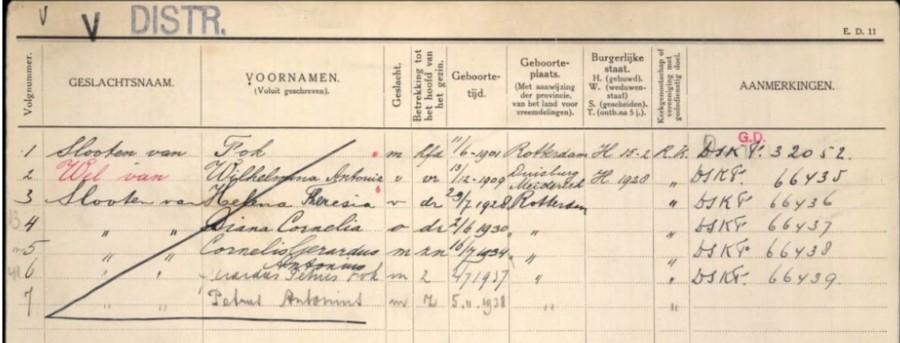 V V DISTR.
E. D. 11
Volgnummer. GESLACHTSNAAM. VOORNAMEN. (Voluit geschreven). Geslacht. Betrekking tot het hoofd van het gezin. Geboorte-tijd. Geboorte-plaats. (Met aanwijzing der provincie, van het land voor vreemdelingen). Burgerlijke staat. H. (gehuwd). W. (weduwen-staat) S. (gescheiden). T. (ontb. na 5 j.). Kerkgenootschap of vereeniging met godsdienstig doel. AANMERKINGEN.
G.D.
1 Slooten van Fok m hfd 11/6-1901 Rotterdam H 15-2 R.K. DSKF: 32052.
2 Wel van Wilhelmina Antonia v vr 13/12-1909 Duisburg Meiderich H 1928 " DSKF. 66435
3 Slooten van Helena Theresia v dr 1928 Rotterdam " DSKF. 66436
4 " " Diana Cornelia v dr 2/6 1930 " " DSKF. 66437
5 " " Cornelis Gerardus Antonius m zn 16/7 1934 " " DSKF. 66438
6 " " Gerardus Petrus Fok m z 4/7 1937 " " DSKF. 66439
7 Petrus Antonius m z 5.11.1938 " "